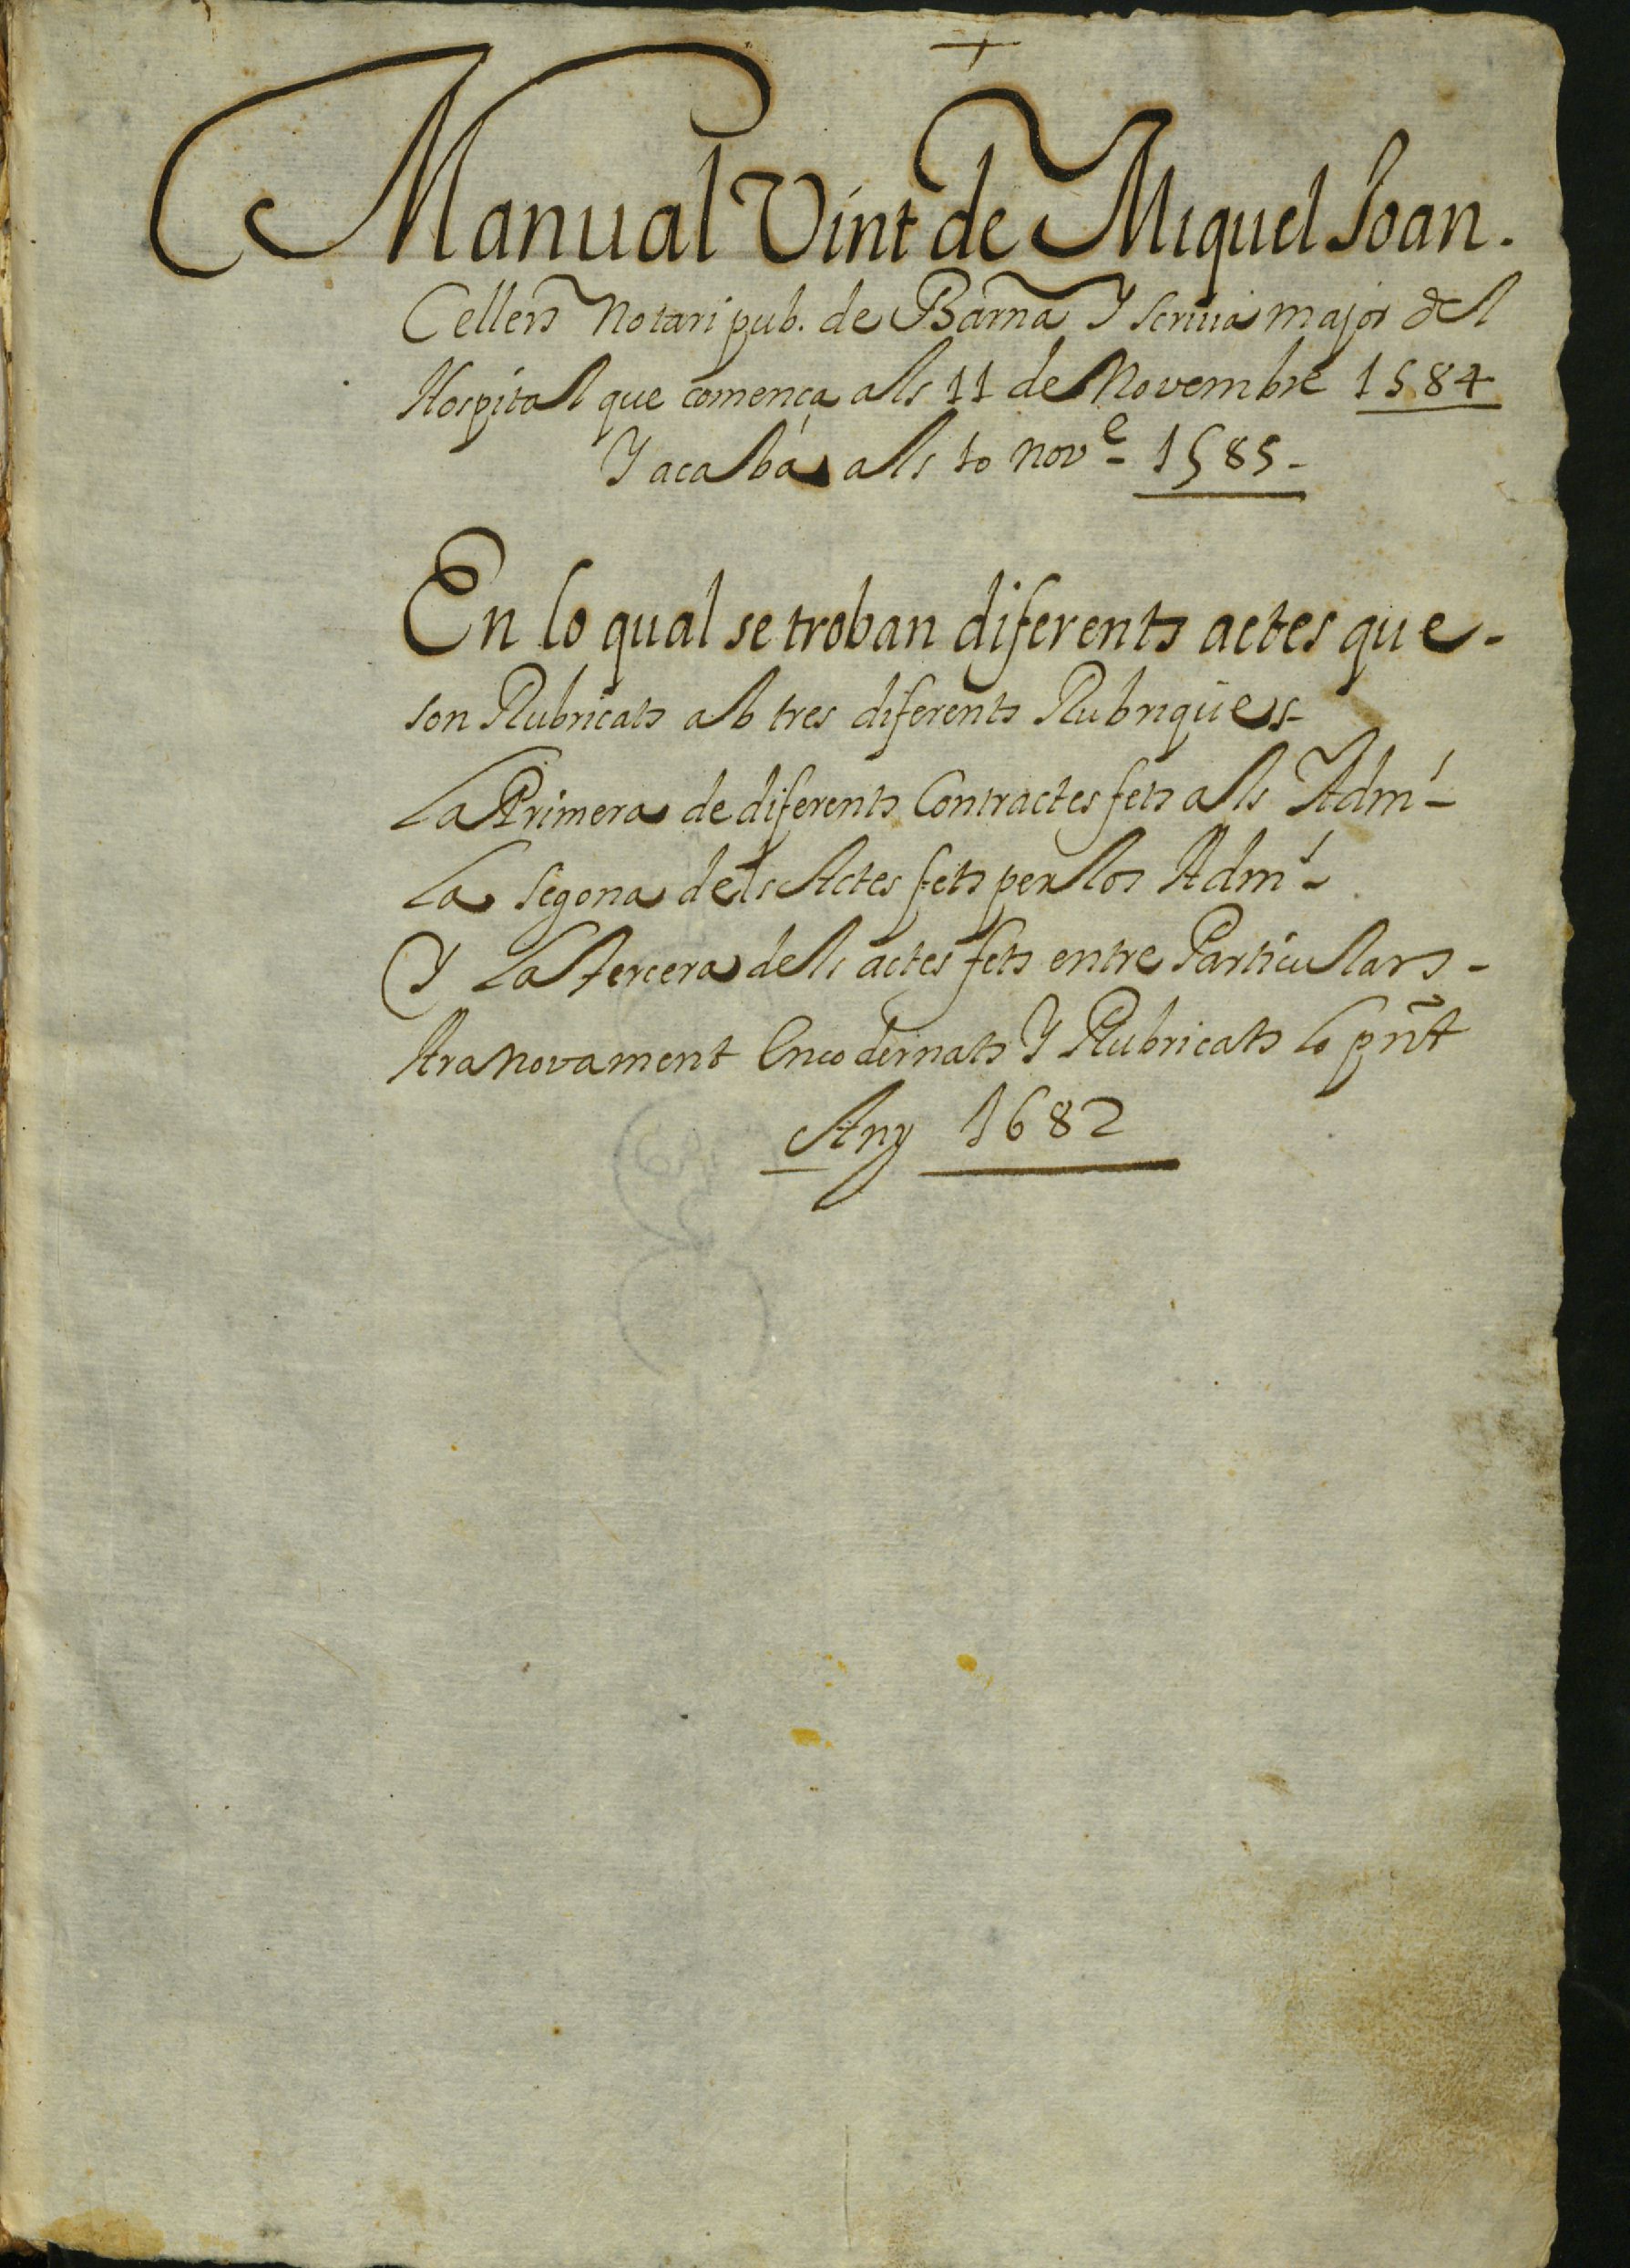 +
Manual Vint de Miquel Joan.
Cellers Notari pub. de Barna Y Scriua major del
Hospital que comença als 11 de Novembre 1584
Y acaba als 10 nov.e 1585-
En lo qual se troban diferents actes que-
son Rubricats ab tres diferents Rubriques-
La Primera de diferents Contractes fets als Adm.s
La Segona dels Actes fets per los Adm.s
Y La tercera dels actes fets entre Particulars-
Ara novament Encodernats Y Rubricats lo pñt
Any 1682